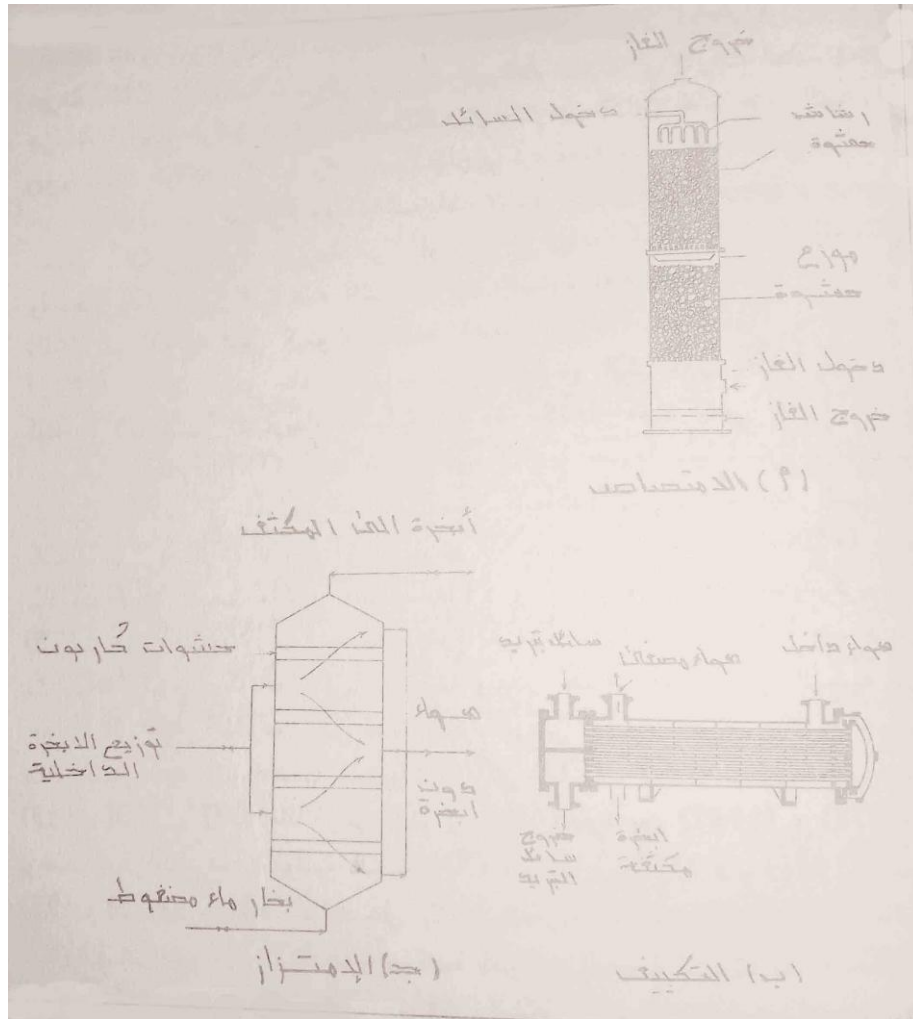 خروج الغاز
دخول السائل
رشاش
حشوة
موزع
حشوة
دخول الغاز
خروج الغاز
(أ) الامتصاص
أبخرة الى المكثف
حشوات كاربون
توزيع الابخرة
الداخلية
هواء
دون
ابخرة
بخار ماء مضغوط
(جـ) الإمتزاز
سائل تبريد
هواء مصفى
هواء داخل
خروج
سائل
التبريد
ابخرة
مكثفة
(ب) التكييف